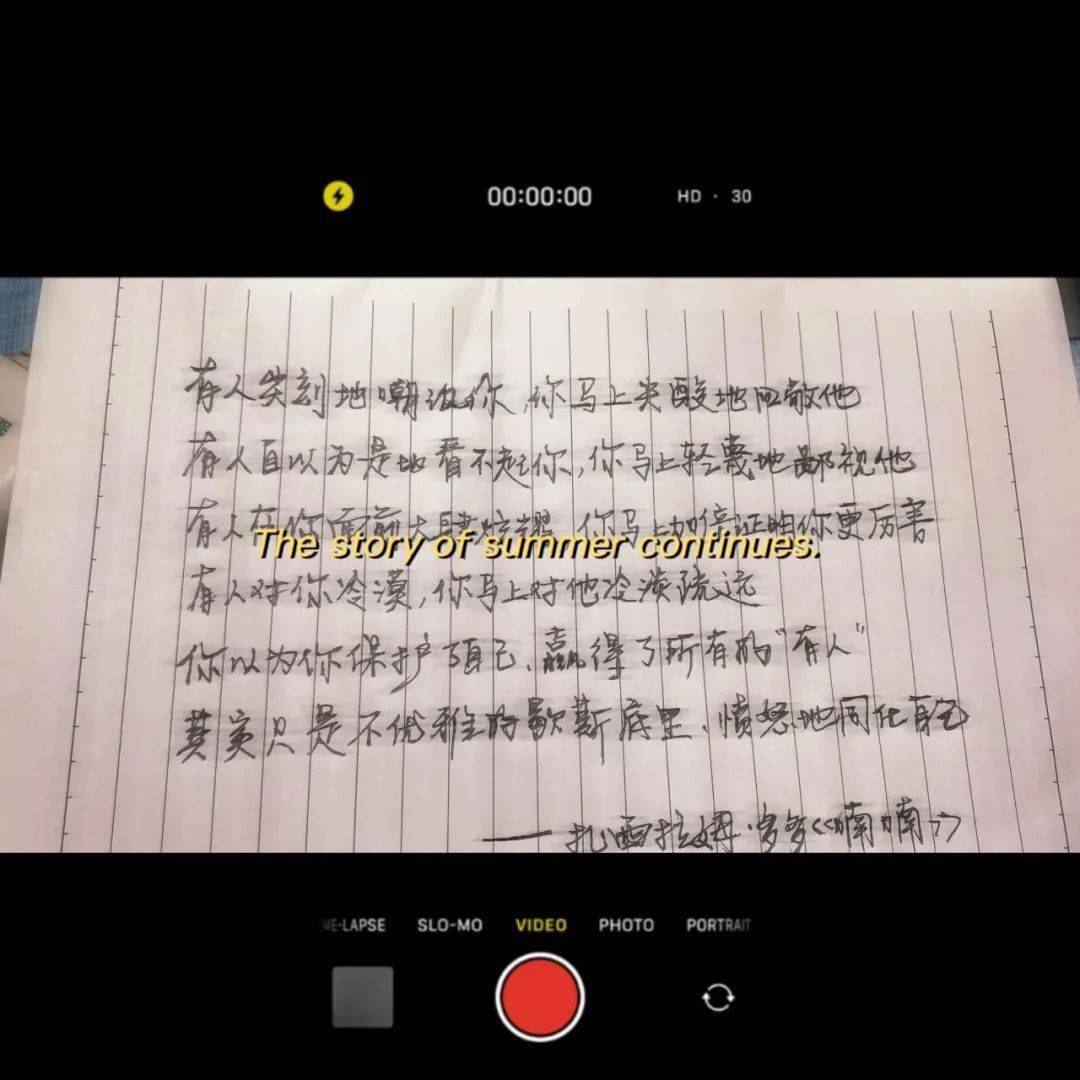 00:00:00
HD · 30
有人尖刻地嘲讽你,你马上尖酸地回敬他
有人自以为是地看不起你,你马上轻蔑地鄙视他
有人在你面前大肆炫耀,你马上加倍证明你更厉害
The story of summer continues.
有人对你冷漠,你马上对他冷淡疏远
你以为你保护了自己、赢得了所有的"有人"
其实只是不优雅的歇斯底里、愤怒地同化自己
——扎西拉姆·多多《喃喃》
ME-LAPSE SLO-MO VIDEO PHOTO PORTRAIT